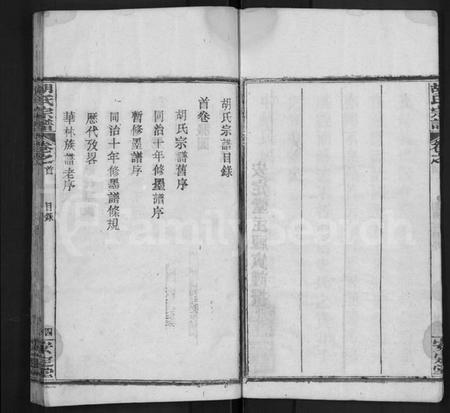 胡氏宗譜
卷之
安定堂
胡氏宗譜目錄
首卷
胡氏宗譜舊序
同治十年修墨譜序
暫修墨譜序
同治十年修墨譜條規
歷代攷畧
華林族譜老序
胡氏宗譜
卷之首
目錄
四
安定堂
FamilySearch